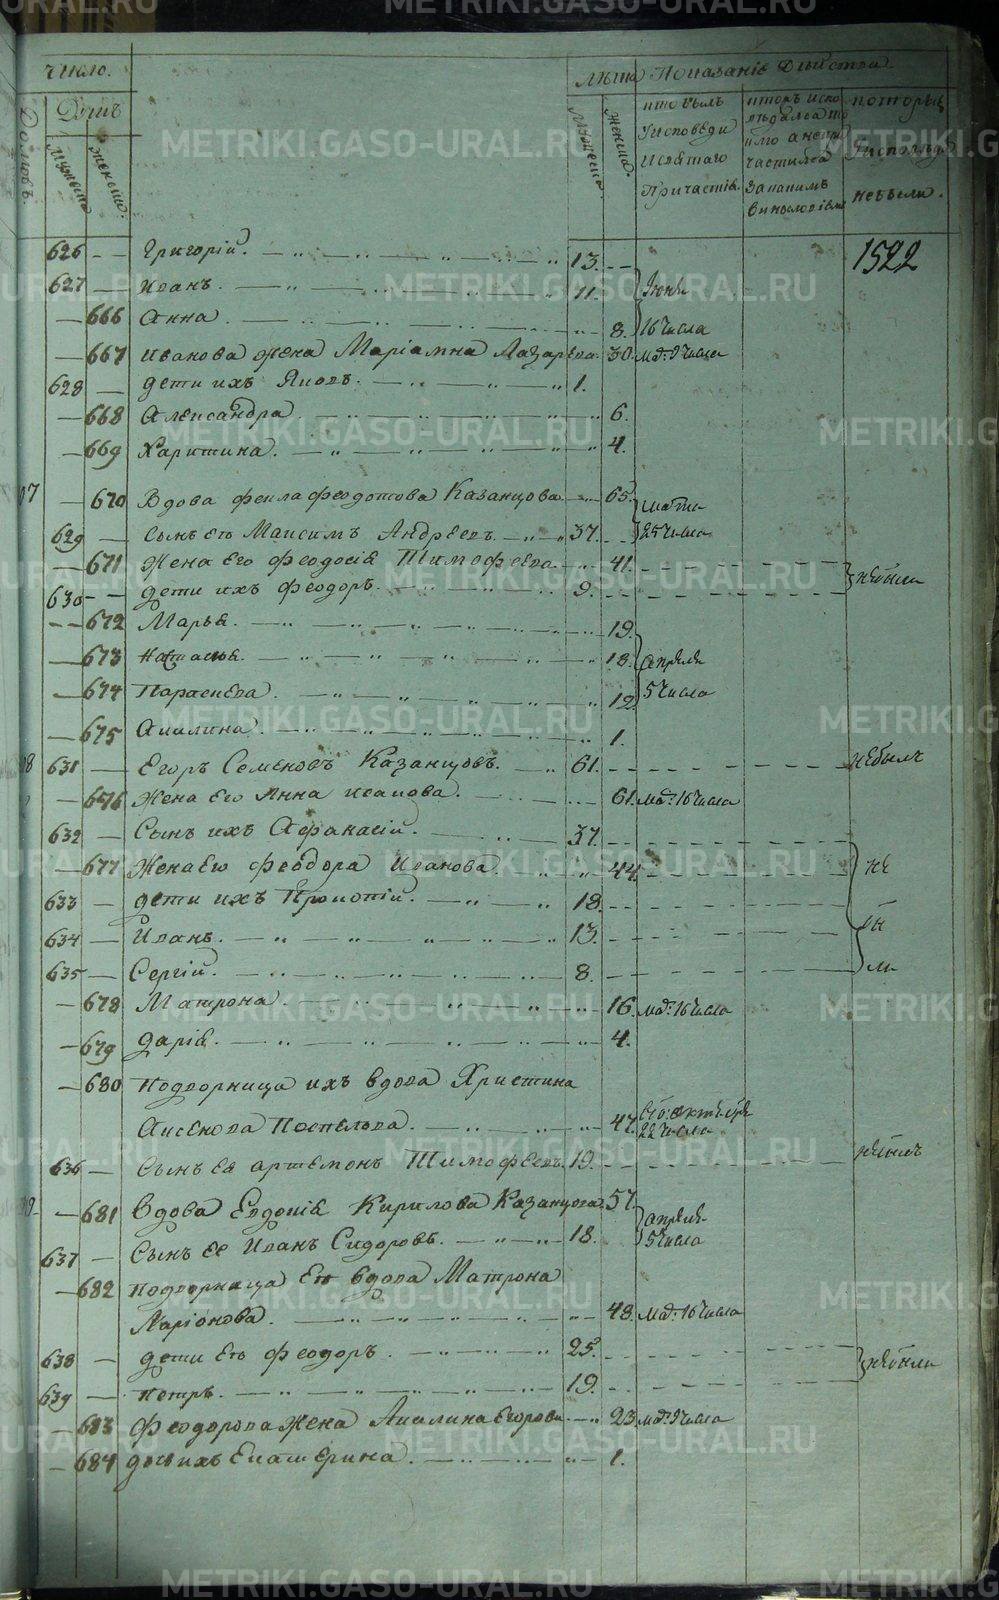 число.
лѣта Показаніе дѣйства.
Домовъ.
Душъ
Мужеска
Женска.
Мужеска
Женска.
кто былъ У исповеди и святаго Причастія.
Которыя
У исповѣди
не были.
1522
626 Григорій. 13.
627 Иванъ. 11. Іюня
666 Анна. 8. 16 числа
667 Иванова жена Маріамна Лазарева 30. мая 9 числа
628 дети ихъ Яковъ. 1.
668 Александра 6.
669 Харитина. 4.
670 Вдова Фекла Федотова Казанцова 65. марта
629 Сынъ ею Максимъ Андреевъ 37. 25 числа
671 Жена его Феодосія Тимофеева 41. небыли
630 дети ихъ Феодоръ. 9.
672 Марья. 19.
673 Наталья. 18. апреля
674 Параскева. 12. 5 числа
675 Акилина. 1.
631 Егоръ Семеновъ Казанцовъ. 61. небылъ
676 Жена его Анна Исакова. 61. мая 16 числа
632 Сынъ ихъ Афанасій. 37.
677 Жена ею Феодора Иванова. 44. не
633 дети ихъ Прокопій. 18.
634 Иванъ. 13. бы
635 Сергій. 8. ли
678 Матрона. 16. мая 16 числа
679 Дарія. 4.
680 Подворница ихъ вдова Христина
Аксенова Поспелова. 47. октября 22 числа
636 Сынъ ея Артемонъ Тимофеевъ. 19. небылъ
681 Вдова Евдокія Кирилова Казанцова 57. апреля
637 Сынъ ее Иванъ Сидоровъ. 18. 5 числа
682 Подворница ею вдова Матрона
Ларіонова. 48. мая 16 числа
638 дети ею Феодоръ. 25. небыли
639 Петръ. 19.
683 Феодорова жена Акилина Егорова 23. мая 9 числа
684 дочь ихъ Екатерина. 1.
METRIKI.GASO-URAL.RU